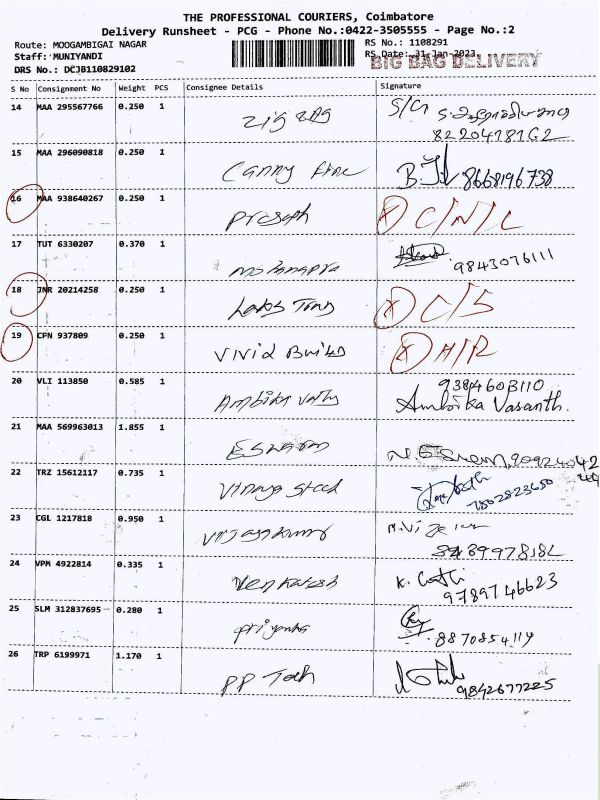 THE PROFESSIONAL COURIERS, Coimbatore
Delivery Runsheet - PCG - Phone No.:0422-3505555 - Page No.:2
Route: MOOGAMBIGAI NAGAR RS No.: 1108291
Staff: MUNIYANDI RS Date: 31-Jan-2023
BIG BAG DELIVERY
DRS No.: DCJB110829102
S No Consignment No Weight PCS Consignee Details Signature
14 MAA 295567766 0.250 1 Zig Zag
15 MAA 296090818 0.250 1 Canny 8668196738
16 MAA 938640267 0.250 1 C/N/L
17 TUT 6330207 0.370 1 9843076111
18 JNR 20214258 0.250 1 C/S
19 CPN 937809 0.250 1 Vivid Build A/R
20 VLI 113850 0.585 1 Ambika 9384603110
Ambika Vasanth.
21 MAA 569963013 1.855 1 Eswaran
22 TRZ 15612117 0.735 1 Vinaya Steel 7502823650
23 CGL 1217818 0.950 1 Vijayakumar
24 VPM 4922814 0.335 1 Venkatesh
9789746623
25 SLM 312837695 0.280 1 Priyanka
8870854119
26 TRP 6199971 1.170 1 PP Tech 9842677225